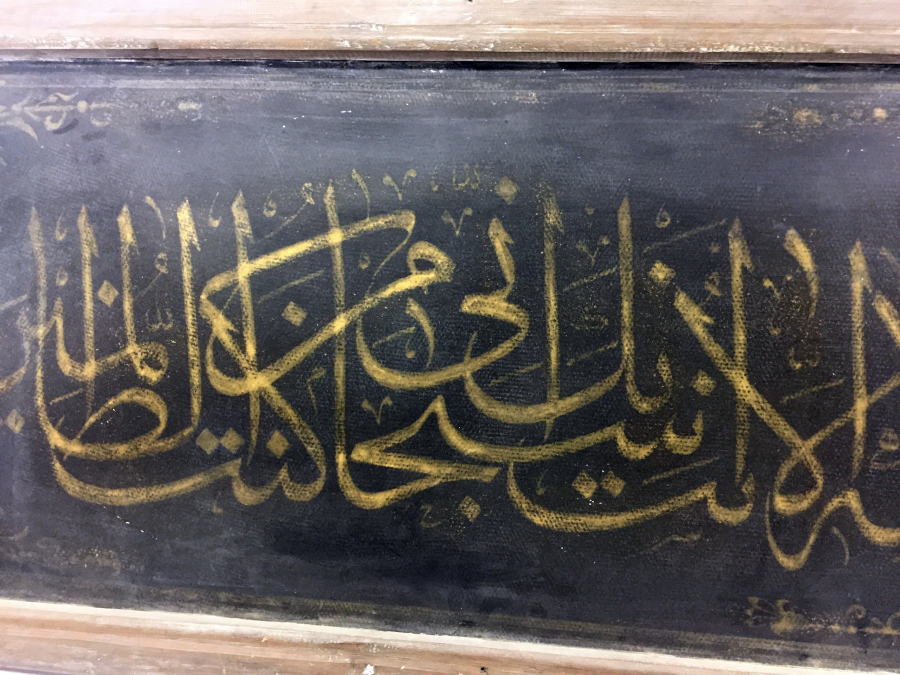 إلا أنت سبحانك إني كنت من الظالمين